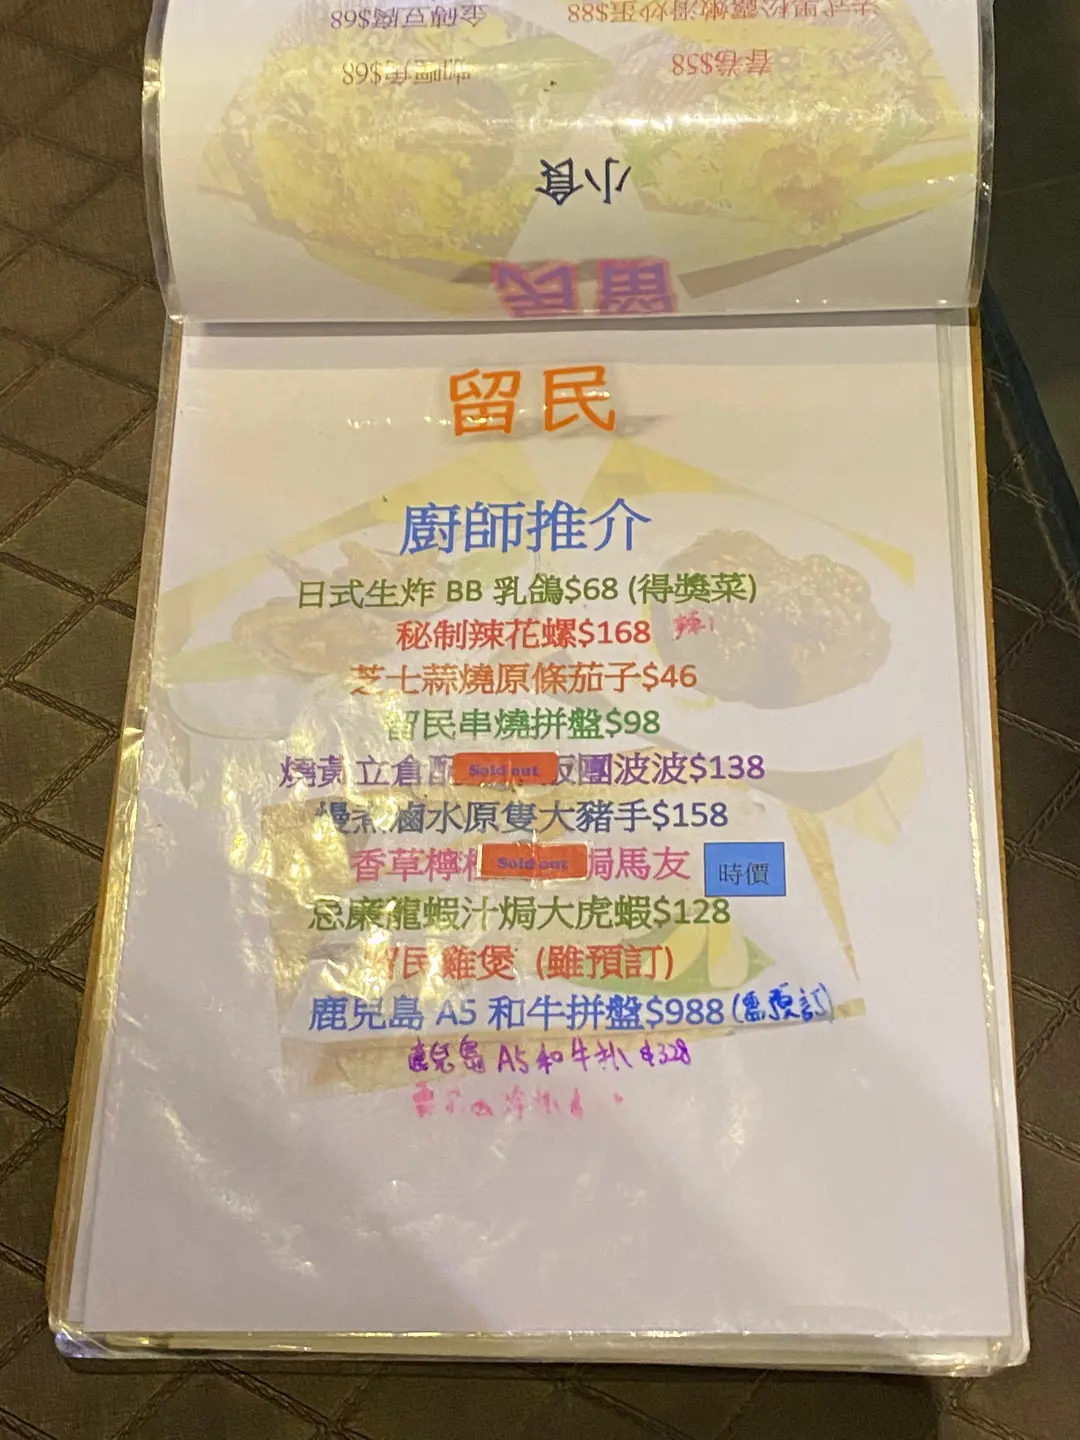 金磚豆腐$68
法式黑松露嫩滑炒蛋$88
咖喱角$68
春卷$58
小食
留民
留民
廚師推介
日式生炸 BB 乳鴿$68 (得獎菜)
秘制辣花螺$168 辣
芝士蒜燒原條茄子$46
留民串燒拼盤$98
燒黃立倉配 Sold out 飯團波波$138
慢煮滷水原隻大豬手$158
香草檸 Sold out 焗馬友 時價
忌廉龍蝦汁焗大虎蝦$128
留民雞煲 (雖預訂)
鹿兒島 A5 和牛拼盤$988 (需預訂)
鹿兒島 A5和牛扒 $328